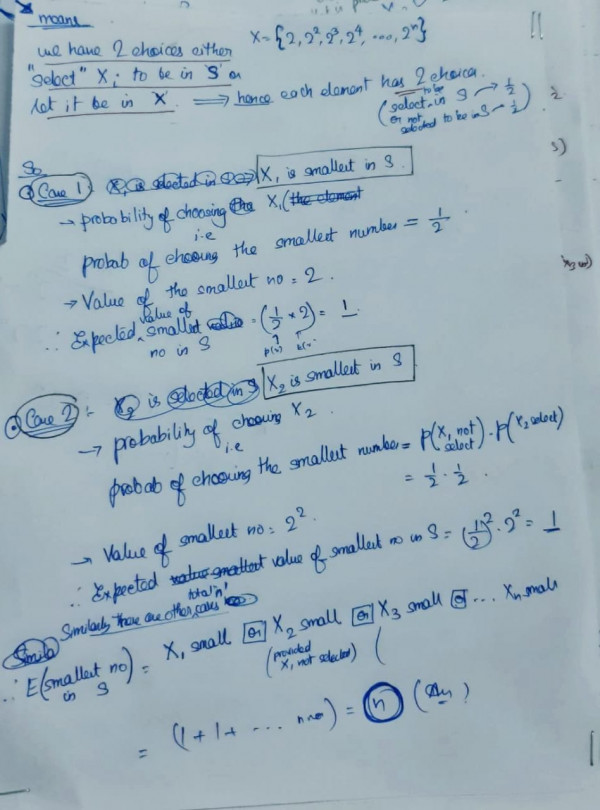 means
we have 2 choices either
X = {2, 2², 2³, 2⁴, ..., 2ⁿ}
"select" Xᵢ to be in 'S' or
let it be in 'X' ⟹ hence each element has 2 choices.
(to be select in S → 1/2
or not selected to be in S → 1/2)
So
Case 1) X₁ is smallest in S.
→ probability of choosing X₁ (the element
i.e
probab of choosing the smallest number = 1/2.
→ Value of the smallest no = 2.
∴ Expected value of smallest no in S = (1/2 × 2) = 1.
Case 2 :- X₂ is selected in S X₂ is smallest in S
→ probability of choosing X₂.
i.e
probab of choosing the smallest number = P(X₁ not select) . P(X₂ select)
= 1/2 . 1/2 .
→ Value of smallest no = 2².
∴ Expected value smallest value of smallest no in S = (1/2)² . 2² = 1
Similarly there are other total 'n' cases
∴ E(smallest no in S) = X₁ small or X₂ small or X₃ small or ... Xₙ small
(provided X₁ not selected) (
= (1 + 1 + ... ) = n (Ans)